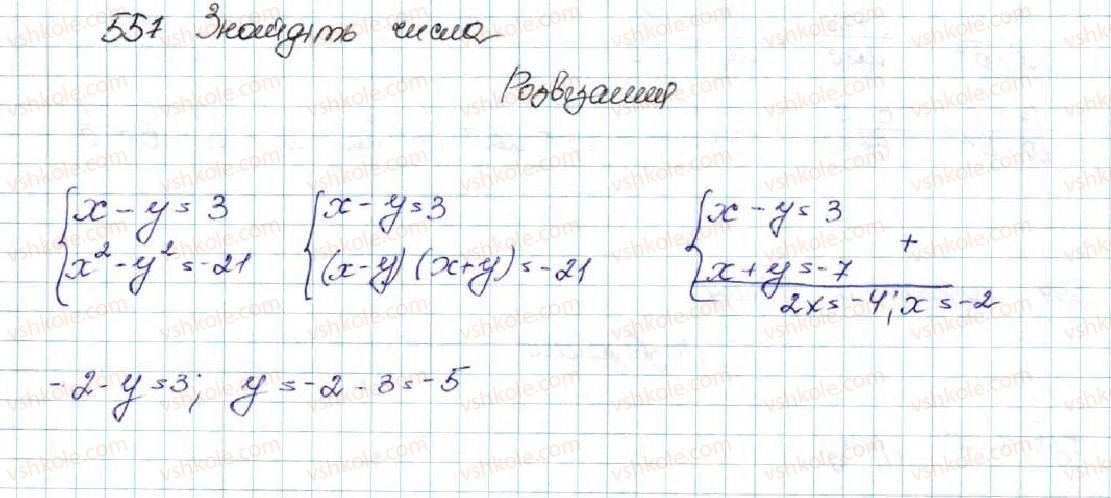 557 Знайдіть числа
Розвізання
x - y = 3
x² - y² = -21
x - y = 3
(x - y)(x + y) = -21
x - y = 3
+
x + y = -7
2x = -4; x = -2
-2 - y = 3; y = -2 - 3 = -5
vshkole.com